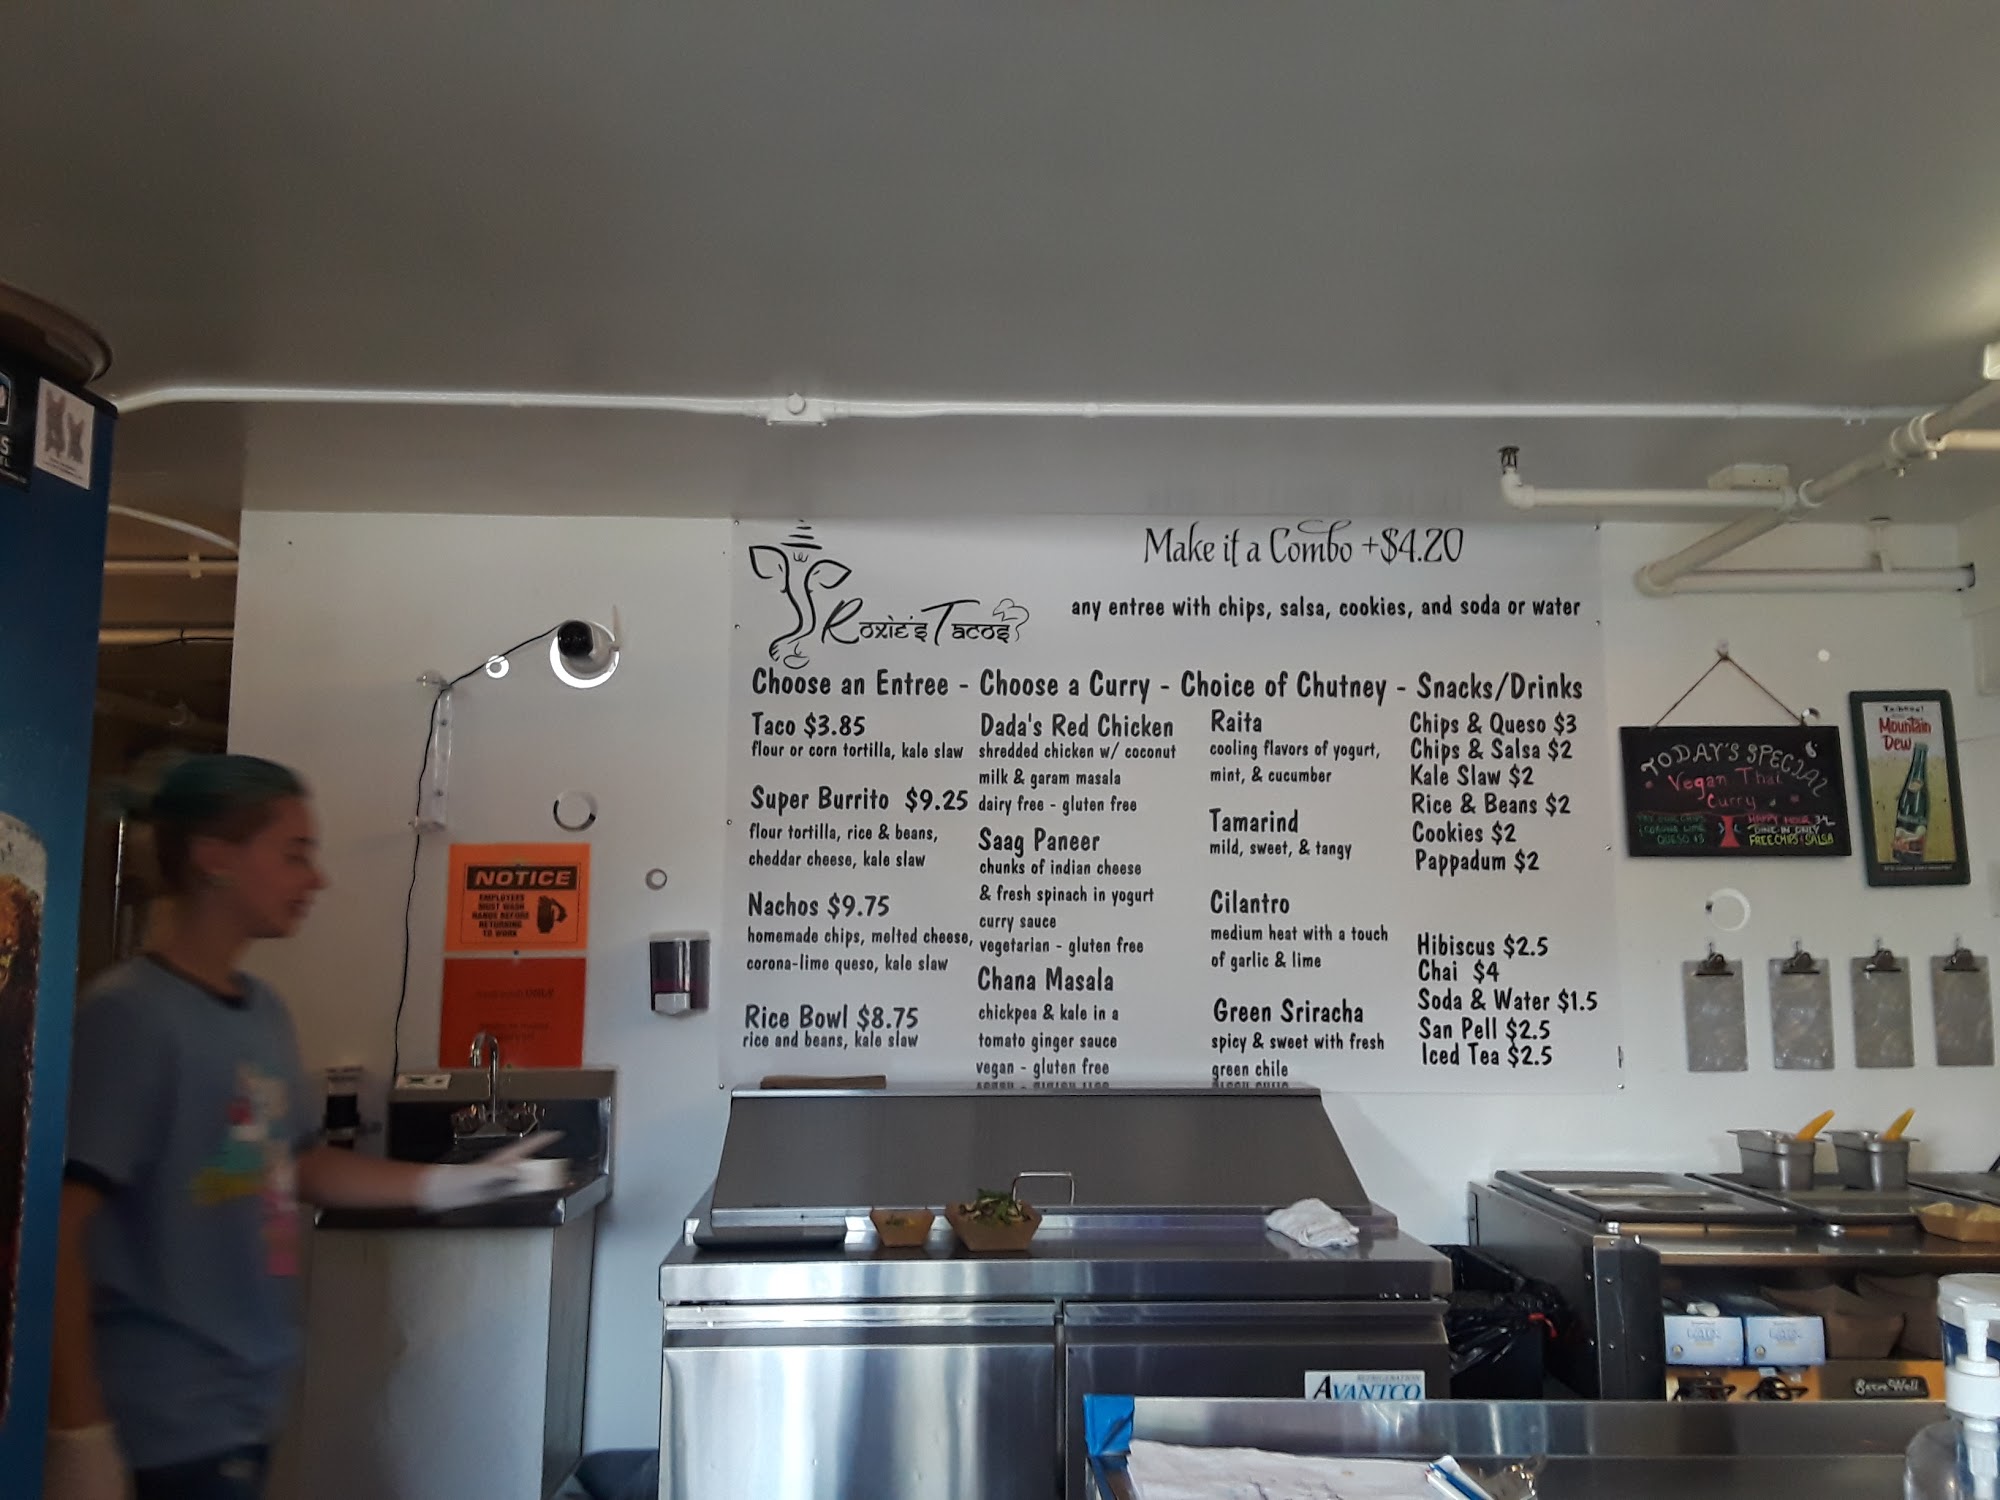 Make it a Combo +$4.20
any entree with chips, salsa, cookies, and soda or water
Roxie's Tacos
Choose an Entree - Choose a Curry - Choice of Chutney - Snacks/Drinks
Taco $3.85
flour or corn tortilla, kale slaw
Super Burrito $9.25
flour tortilla, rice & beans,
cheddar cheese, kale slaw
Nachos $9.75
homemade chips, melted cheese,
corona-lime queso, kale slaw
Rice Bowl $8.75
rice and beans, kale slaw
Dada's Red Chicken
shredded chicken w/ coconut
milk & garam masala
dairy free - gluten free
Saag Paneer
chunks of indian cheese
& fresh spinach in yogurt
curry sauce
vegetarian - gluten free
Chana Masala
chickpea & kale in a
tomato ginger sauce
vegan - gluten free
Raita
cooling flavors of yogurt,
mint, & cucumber
Tamarind
mild, sweet, & tangy
Cilantro
medium heat with a touch
of garlic & lime
Green Sriracha
spicy & sweet with fresh
green chile
Chips & Queso $3
Chips & Salsa $2
Kale Slaw $2
Rice & Beans $2
Cookies $2
Pappadum $2
Hibiscus $2.5
Chai $4
Soda & Water $1.5
San Pell $2.5
Iced Tea $2.5
TODAY'S SPECIAL
Vegan Thai
Curry
CORONA LIME
QUESO $3
HAPPY HOUR 3-4
DINE-IN ONLY
FREE CHIPS & SALSA
Mountain
Dew
NOTICE
EMPLOYEES
MUST WASH
HANDS BEFORE
RETURNING
TO WORK
REFRIGERATION
AVANTCO
ServeWell